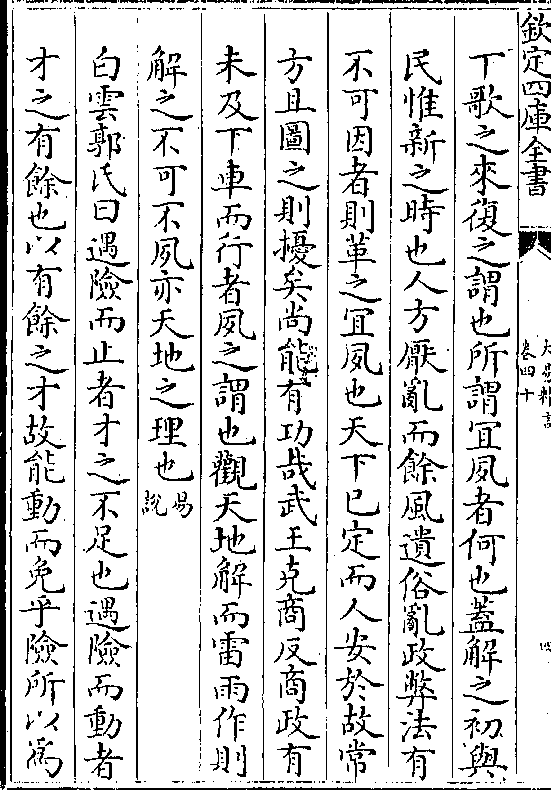 欽定四庫全書
大易粹言
卷四十
四
下歌之來復之謂也所謂冝夙者何也蓋解之初與
民惟新之時也人方厭亂而餘風遺俗亂政弊法有
不可因者則革之冝夙也天下已定而人安於故常
方且圖之則擾矣尚能有功哉武王克商反商政有
未及下車而行者夙之謂也觀天地解而雷雨作則
解之不可不夙亦天地之理也易說
白雲郭氏曰遇險而止者才之不足也遇險而動者
才之有餘也以有餘之才故能動而免乎險所以為